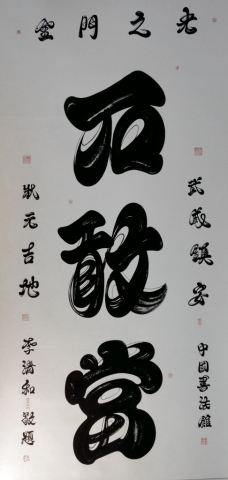 金門之光
武威鎮安
石敢當
狀元吉地
中国書法
李 和敬題